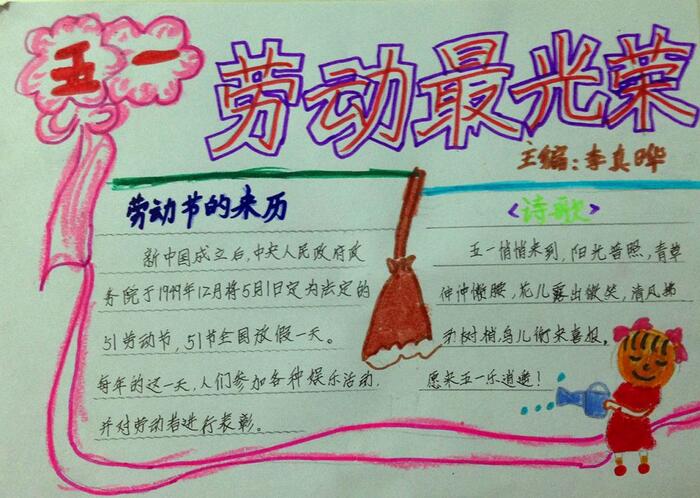 五一
劳动最光荣
主编:李真晔
劳动节的来历
新中国成立后,中央人民政府政
务院于1949年12月将5月1日定为法定的
51劳动节,51节全国放假一天。
每年的这一天,人们参加各种娱乐活动,
并对劳动者进行表彰。
《诗歌》
五一悄悄来到,阳光普照,青草
伸伸懒腰,花儿露出微笑,清风娣
动树梢,鸟儿衔来喜报,
愿来五一乐逍遥!